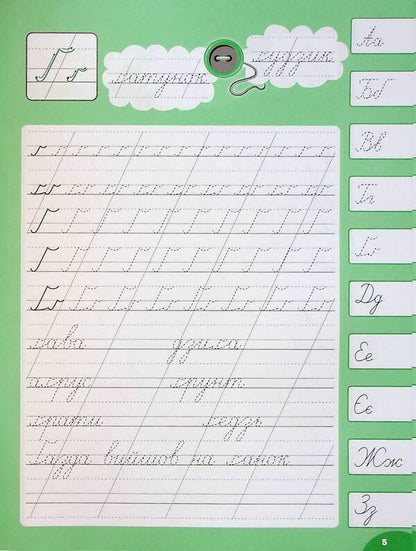 Ґ ґ
ґатунок
ґудзик
ґава дзиґа
аґрус ґрунт
ґрати ґедзь
Ґазда вийшов на ґанок
Аа
Бб
Вв
Гг
Ґґ
Дд
Ее
Єє
Жж
Зз
5